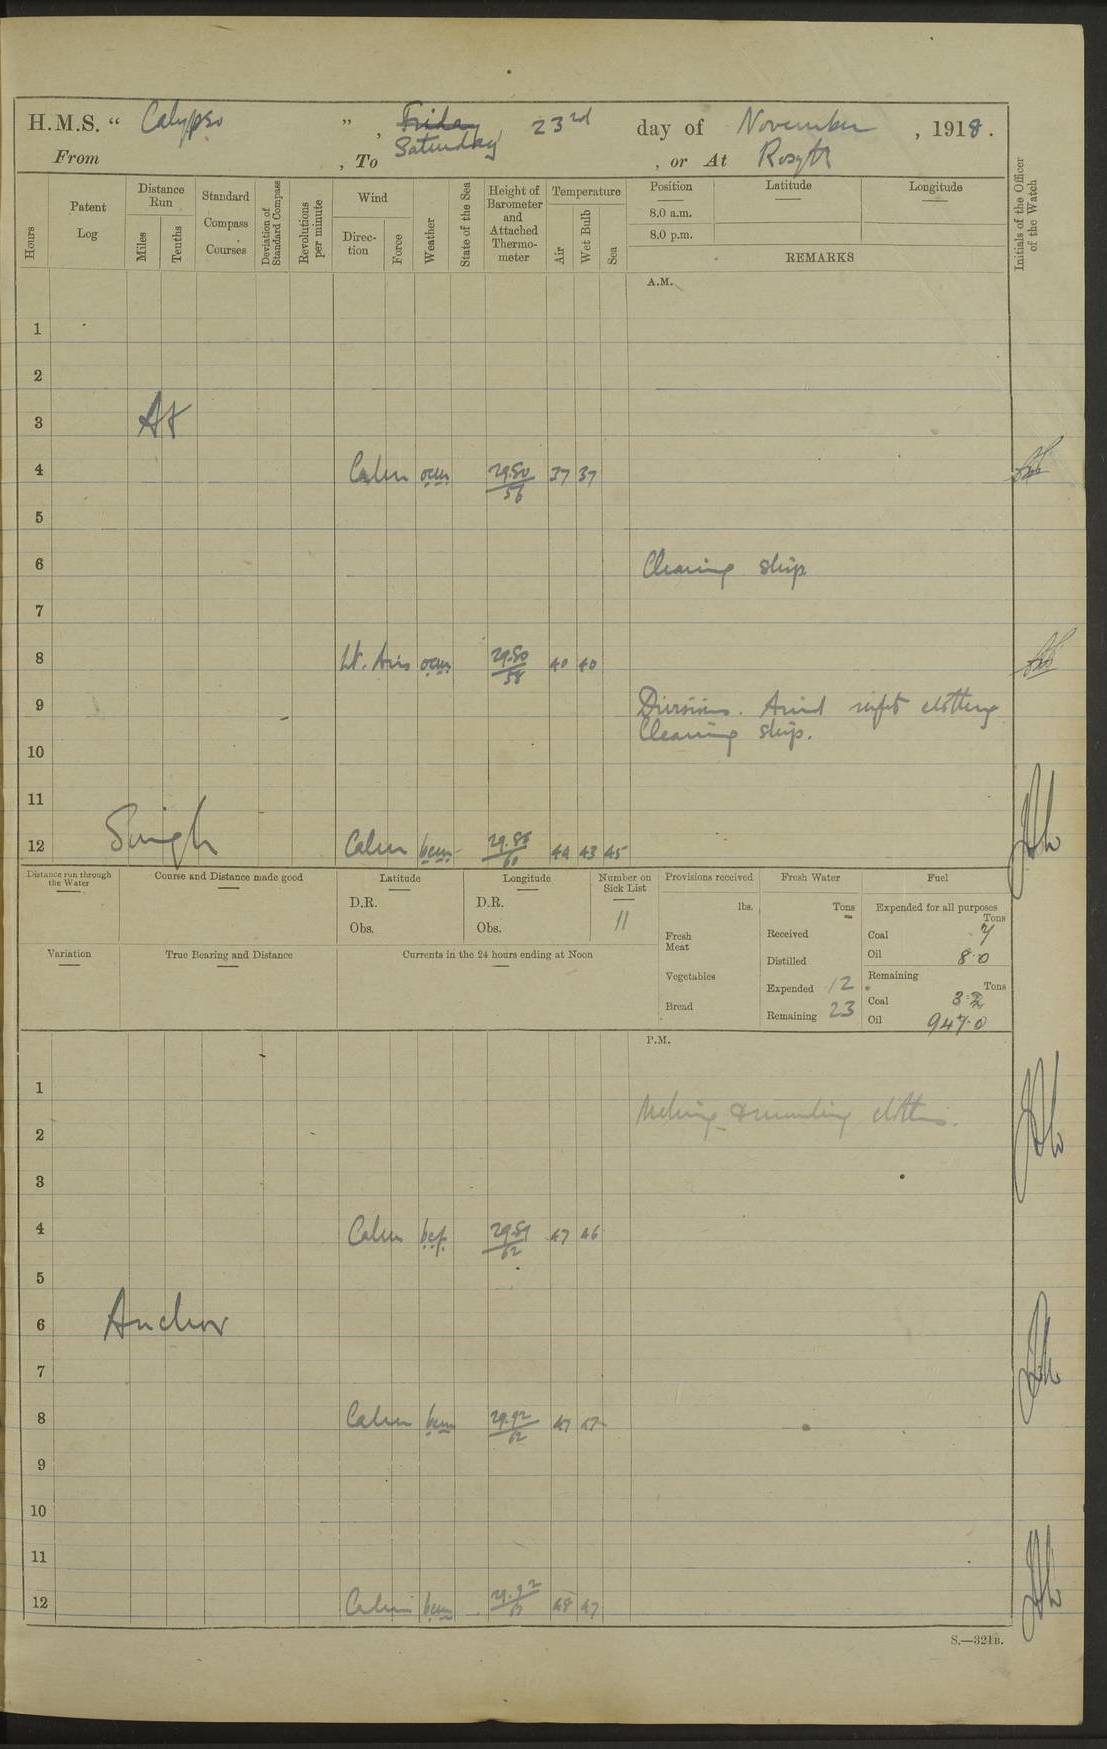 H.M.S. “ Calypso ” , Friday 23rd day of November , 1918.
Saturday
From , To , or At Rosyth
Hours
Patent Log
Distance Run
Miles
Tenths
Standard Compass Courses
Deviation of Standard Compass
Revolutions per minute
Wind
Direction
Force
Weather
State of the Sea
Height of Barometer and Attached Thermometer
Temperature
Air
Wet Bulb
Sea
Position
8.0 a.m.
8.0 p.m.
Latitude
Longitude
REMARKS
Initials of the Officer of the Watch
A.M.
1
2
3 At
4 Calm 29.80 56 37 37
5
6 Cleaning ship
7
8 Lt. Airs 29.80 58 40 40
9 Divisions. clothing
Cleaning ship.
10
11
12 Single Calm 29.86 60 44 43 45
Distance run through the Water
Course and Distance made good
Latitude
D.R.
Obs.
Longitude
D.R.
Obs.
Number on Sick List
11
Provisions received
lbs.
Fresh Meat
Vegetables
Bread
Fresh Water
Tons
Received
Distilled
Expended 12
Remaining 23
Fuel
Expended for all purposes
Tons
Coal .7
Oil 8.0
Remaining
Tons
Coal
Oil 947.0
Variation
True Bearing and Distance
Currents in the 24 hours ending at Noon
P.M.
1
Making & mending clothes.
2
3
4 Calm 29.89 62 47 46
5
6 Anchor
7
8 Calm 29.92 62 47 47
9
10
11
12 Calm 29.92 48 47
S.—321B.